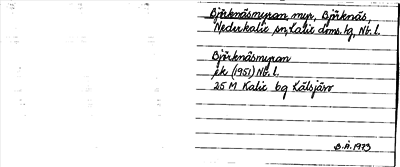 Björknäsmyran, myr, Björknäs,
Nederkalix sn, Kalix doms. tg, Nb. l.
Björknäsmyran
ek (1951) Nb. l.
25 M Kalix bq Kälsjärv
B.Å. 1973